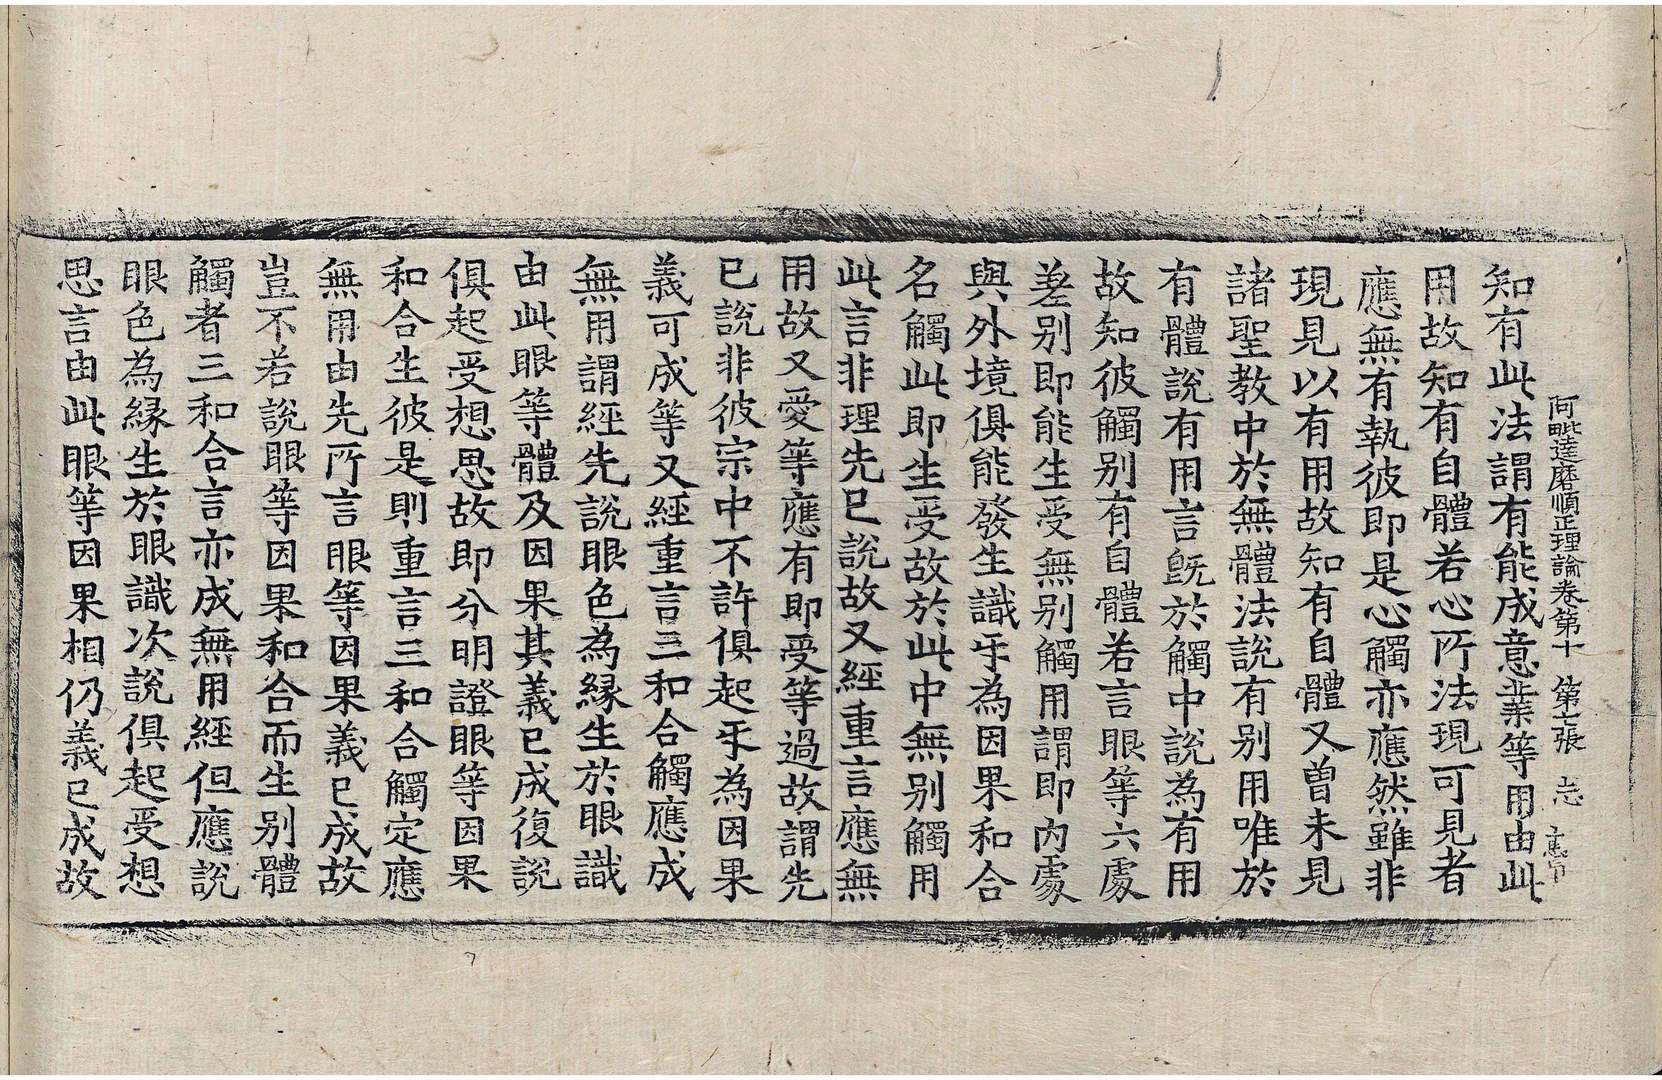 阿毗達磨順正理論卷第十 第六張 志
知有此法謂有能成意業等用由此
用故知有自體若心所法現可見者
應無有執彼即是心觸亦應然雖非
現見以有用故知有自體又曾未見
諸聖教中於無體法說有別用唯於
有體說有用言旣於觸中說為有用
故知彼觸別有自體若言眼等六處
差別即能生受無別觸用謂即內處
與外境俱能發生識乎為因果和合
名觸此即生受故於此中無別觸用
此言非理先已說故又經重言應無
用故又愛等應有即受等過故謂先
已說非彼宗中不許俱起乎為因果
義可成等又經重言三和合觸應成
無用謂經先說眼色為緣生於眼識
由此眼等體及因果其義已成復說
俱起受想思故即分明證眼等因果
和合生彼是則重言三和合觸定應
無用由先所言眼等因果義已成故
豈不若說眼等因果和合而生別體
觸者三和合言亦成無用經但應說
眼色為緣生於眼識次說俱起受想
思言由此眼等因果相仍義已成故